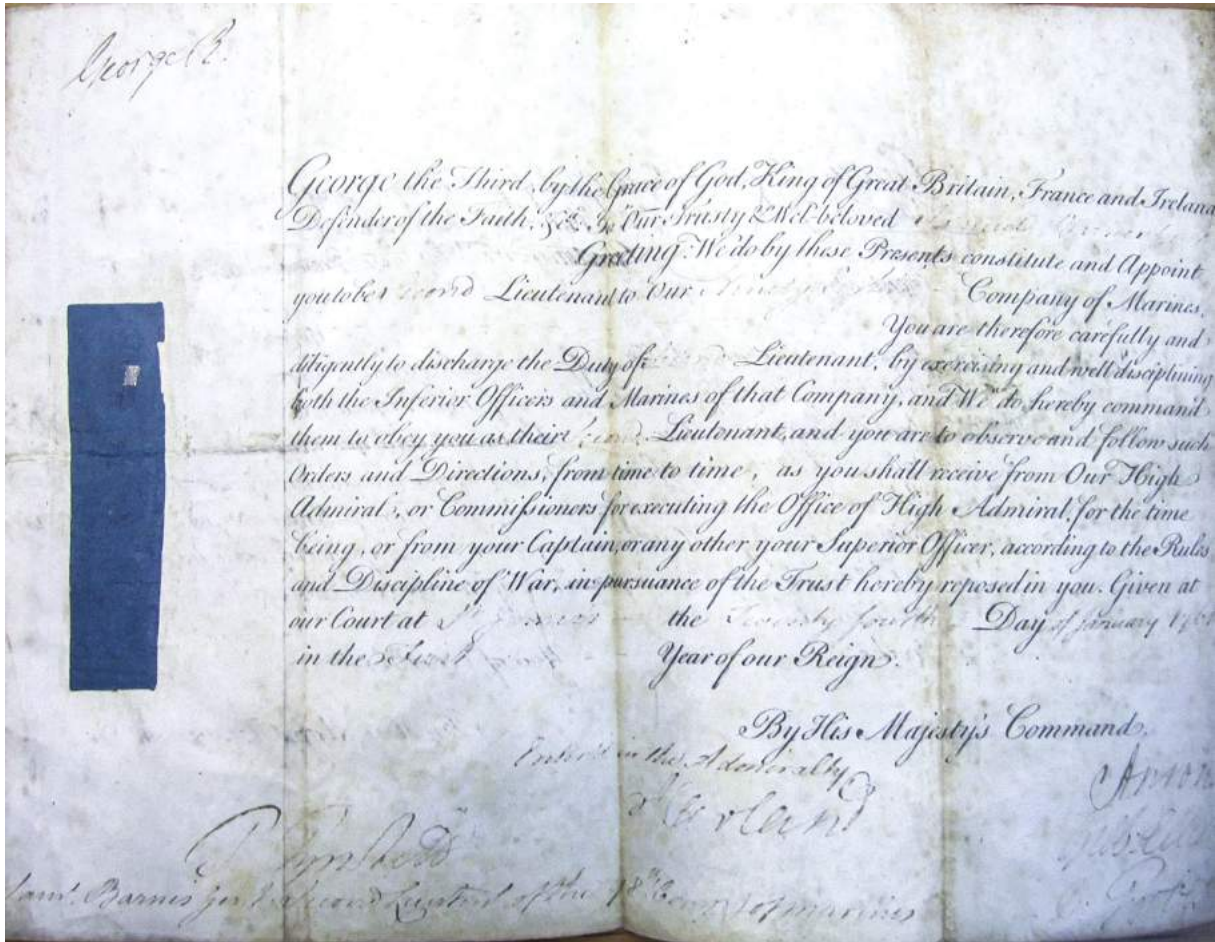 George R.
George the Third, by the Grace of God, King of Great Britain, France and Ireland
Defender of the Faith, &c. To Our Trusty & Wel-beloved
Greeting: We do by these Presents constitute and Appoint
you to be Second Lieutenant to Our Company of Marines.
You are therefore carefully and
diligently to discharge the Duty of Second Lieutenant, by exercising and well disciplining
both the Inferior Officers and Marines of that Company, and We do hereby command
them to obey you as their Second Lieutenant, and you are to observe and follow such
Orders and Directions, from time to time, as you shall receive from Our High
Admiral, or Commissioners for executing the Office of High Admiral, for the time
being, or from your Captain, or any other your Superior Officer, according to the Rules
and Discipline of War, in pursuance of the Trust hereby reposed in you. Given at
our Court at St. James's the Twenty fourth Day of January
in the First Year of our Reign.
By His Majesty's Command,
in the Admiralty
Anson
Saml. Barnis Second of the of marines